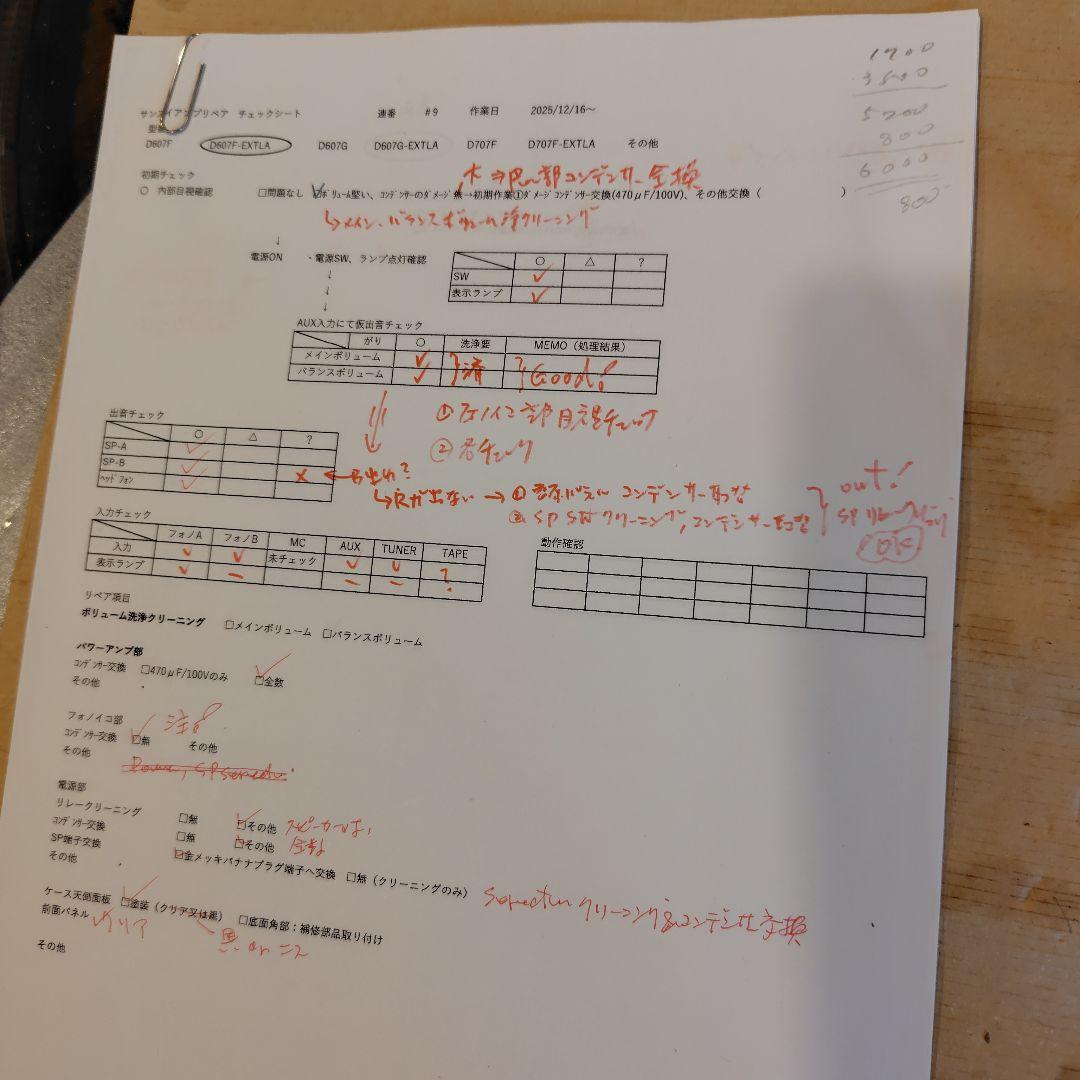 1700
3500
5200
800
6000
800
サンスイアンプリペア チェックシート 連番 #9 作業日 2025/12/16～
型番
D607F D607F-EXTLA D607G D607G-EXTLA D707F D707F-EXTLA その他
初期チェック
○ 内部目視確認 □問題なし ☑ボリューム堅い、コンデンサーのダメージ無→初期作業①ダメージコンデンサー交換(470μF/100V)、その他交換（ ）
コンデンサー全換
↳メイン、バランスボリューム洗浄クリーニング
↓
電源ON ・電源SW、ランプ点灯確認
↓
↓
↓
○ △ ?
SW ✓
表示ランプ ✓
AUX入力にて仮出音チェック
がり ○ 洗浄要 MEMO（処理結果）
メインボリューム ✓ 済 Good!
バランスボリューム ✓
② 音チェック
出音チェック
○ △ ?
SP-A ✓
SP-B ✓
ヘッドフォン ✓ ×
↳Rが出ない → ①
② SP SW クリーニング,コンデンサー
out!
OK
入力チェック
フォノA フォノB MC AUX TUNER TAPE
入力 ✓ ✓ 未チェック ✓ ✓ ?
表示ランプ ✓ − − −
動作確認
リペア項目
ボリューム洗浄クリーニング □メインボリューム □バランスボリューム
パワーアンプ部
コンデンサー交換 □470μF/100Vのみ ☑全数
その他
フォノイコ部
コンデンサー交換 ☑無 その他 注!
その他
電源部
リレークリーニング □無 ☑その他 スピーカー
コンデンサー交換 □無 ☑その他 全数
SP端子交換 ☑金メッキバナナプラグ端子へ交換 □無（クリーニングのみ）
その他
クリーニング&コンデンサ交換
ケース天側面板 ☑塗装（クリア又は黒） □底面角部；補修部品取り付け
前面パネル クリア
黒
その他